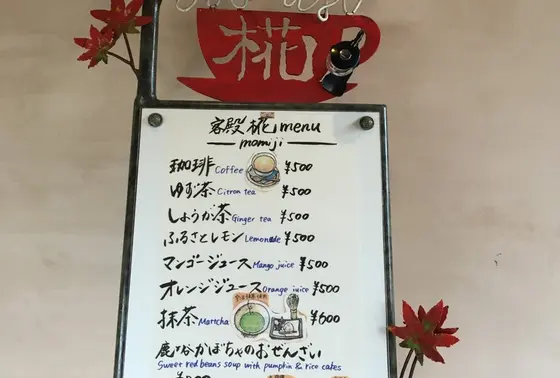 椛
客殿 椛 menu
momiji
珈琲 Coffee ¥500
ゆず茶 Citron tea ¥500
しょうが茶 Ginger tea ¥500
ふるさとレモン Lemonade ¥500
マンゴージュース Mango juice ¥500
オレンジジュース Orange juice ¥500
抹茶 Matcha ¥600
鹿ヶ谷かぼちゃのおぜんざい
Sweet red beans soup with pumpkin & rice cakes